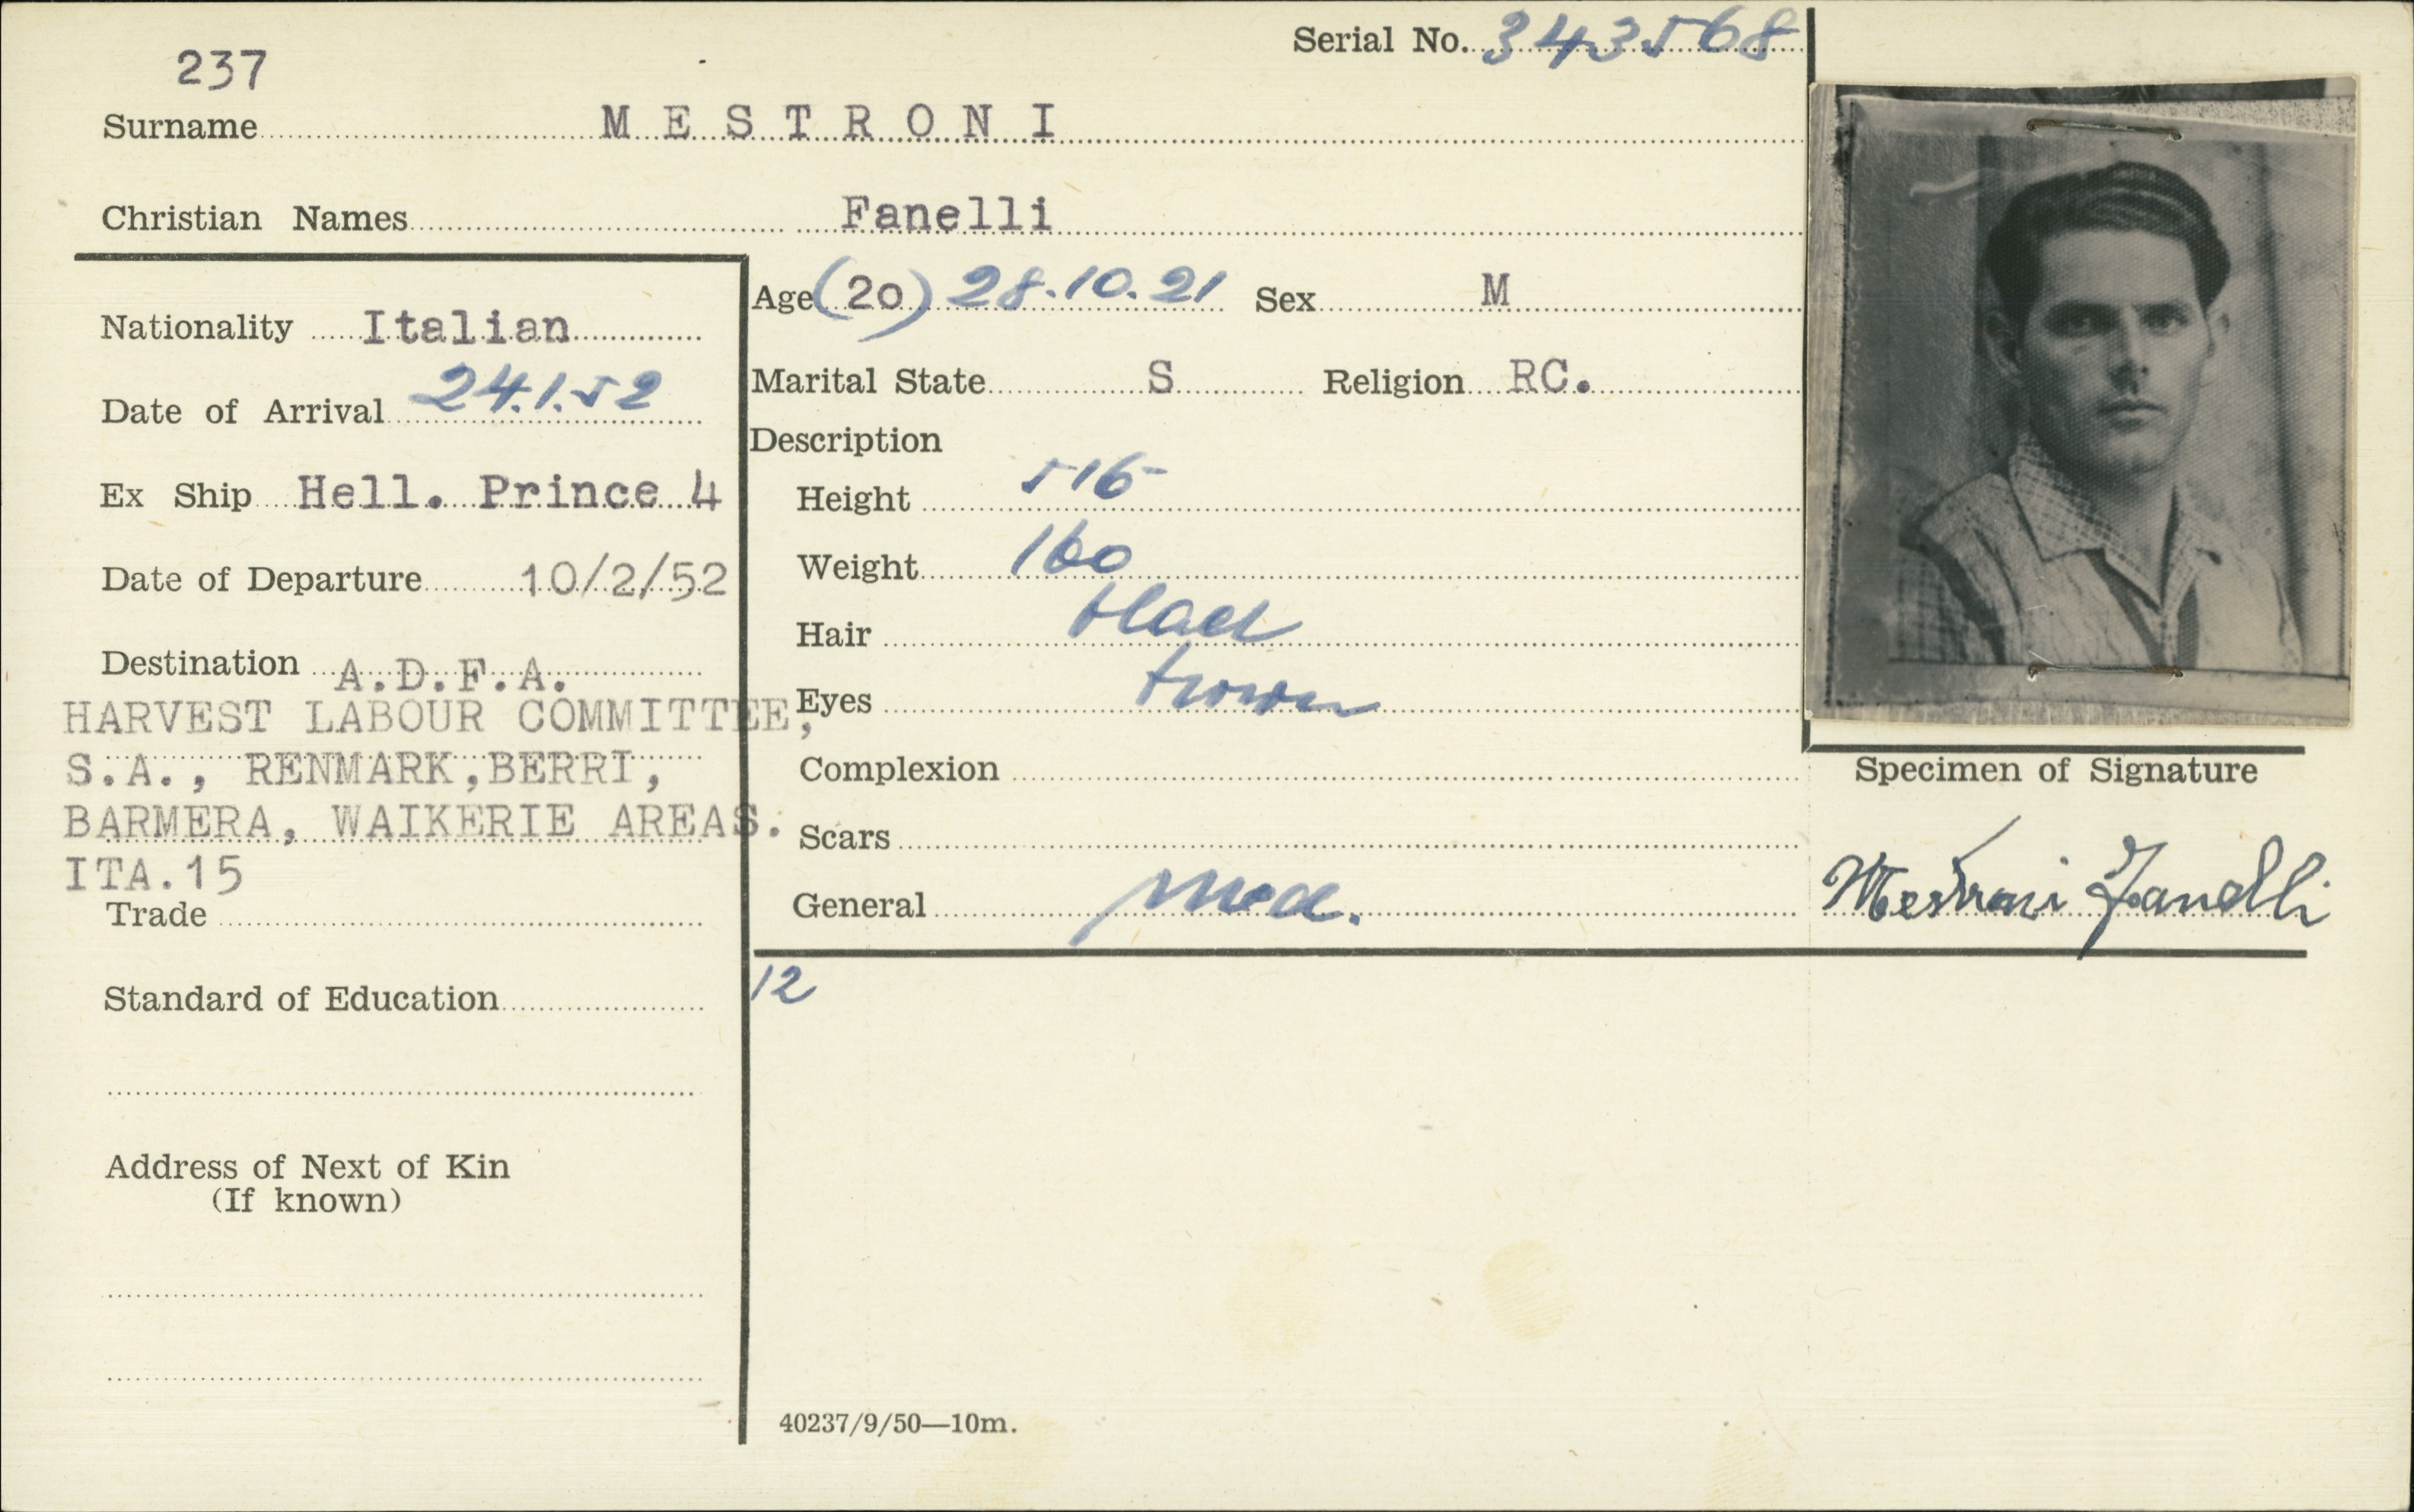 237
Serial No. 343568
Surname MESTRONI
Christian Names Fanelli
Nationality Italian
Date of Arrival 24.1.52
Ex Ship Hell. Prince 4
Date of Departure 10/2/52
Destination A.D.F.A.
HARVEST LABOUR COMMITTEE,
S.A., RENMARK,BERRI,
BARMERA, WAIKERIE AREAS.
ITA.15
Trade
Standard of Education
Address of Next of Kin
(If known)
Age (20) 28.10.21 Sex M
Marital State S Religion RC.
Description
Height
Weight 160
Hair black
Eyes brown
Complexion
Scars
General med.
12
40237/9/50—10m.
Specimen of Signature
Mestroni Fanelli